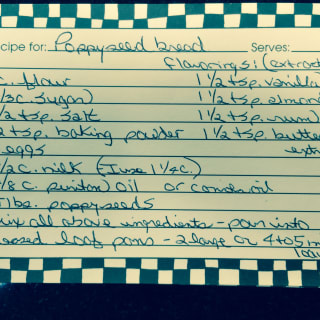 cipe for: Poppyseed bread Serves:
flavorings: (extract
c. flour 1 1/2 tsp. vanilla
1/3 c. sugar) 1 1/2 tsp. almond
1/2 tsp. salt 1 1/2 tsp. rum)
tsp. baking powder 1 1/2 tsp. butter
eggs extr
1/2 c. milk (I use 1 1/4 c.)
1/8 c. puritan) oil or canola oil
Tlbs. poppyseeds
mix all above ingredients - pour into
eased loaf pans - 2 large or 4 to 5 m